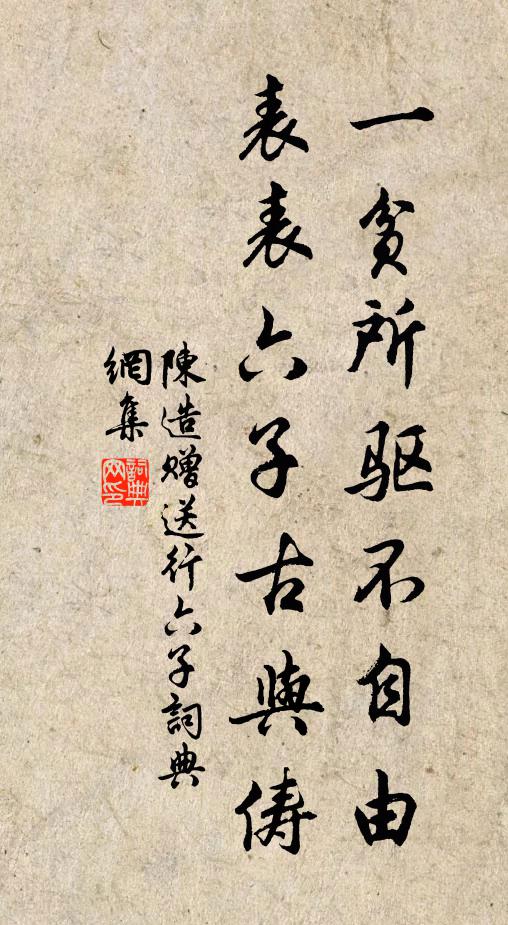 一贫所驱不自由
表表六子古與俦
陳造贈送行六子詞典
網集
詞典網印